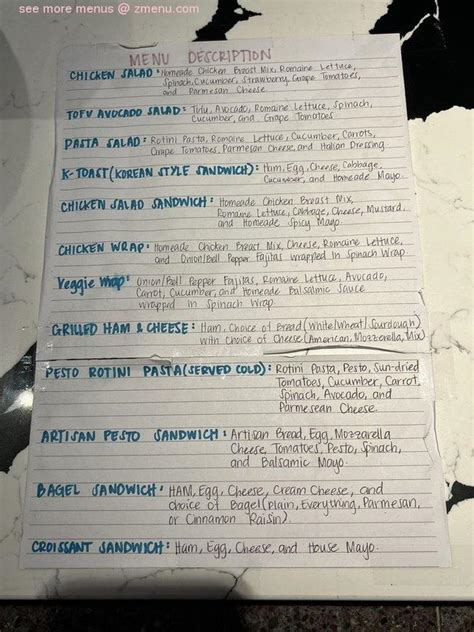 see more menus @ zmenu.com
MENU DESCRIPTION
CHICKEN SALAD: Homeade Chicken Breast Mix, Romaine Lettuce,
Spinach, Cucumber, Strawberry, Grape Tomatoes,
and Parmesan Cheese
TOFU AVOCADO SALAD: Tofu, Avocado, Romaine Lettuce, Spinach,
Cucumber, and Grape Tomatoes
PASTA SALAD: Rotini Pasta, Romaine Lettuce, Cucumber, Carrots,
Grape Tomatoes, Parmesan Cheese, and Italian Dressing
K-TOAST (KOREAN STYLE SANDWICH): Ham, Egg, Cheese, Cabbage,
Cucumber, and Homeade Mayo.
CHICKEN SALAD SANDWICH: Homeade Chicken Breast Mix,
Romaine Lettuce, Cabbage, Cheese, Mustard,
and Homeade Spicy Mayo.
CHICKEN WRAP: Homeade Chicken Breast Mix, Cheese, Romaine Lettuce,
and Onion/Bell Pepper Fajitas wrapped in Spinach Wrap.
Veggie Wrap: Onion/Bell Pepper Fajitas, Romaine Lettuce, Avocado,
Carrot, Cucumber, and Homeade Balsalmic Sauce
wrapped in Spinach Wrap.
GRILLED HAM & CHEESE: Ham, Choice of Bread (White/Wheat/Sourdough)
with choice of Cheese (American, Mozzerella, Mix)
PESTO ROTINI PASTA (SERVED COLD): Rotini Pasta, Pesto, Sun-dried
Tomatoes, Cucumber, Carrot,
Spinach, Avocado, and
Parmesean Cheese
ARTISAN PESTO SANDWICH: Artisan Bread, Egg, Mozzarella
Cheese, Tomatoes, Pesto, Spinach,
and Balsamic Mayo.
BAGEL SANDWICH: HAM, Egg, Cheese, Cream Cheese, and
choice of Bagel (Plain, Everything, Parmesan,
or Cinnamon Raisin).
CROISSANT SANDWICH: Ham, Egg, Cheese, and House Mayo.